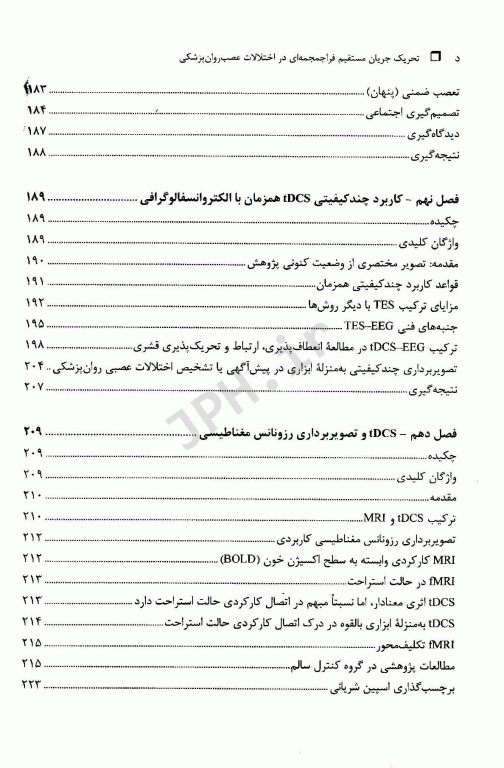 د ❒ تحریک جریان مستقیم فراجمجمه‌ای در اختلالات عصب‌روان‌پزشکی
تعصب ضمنی (پنهان) ۱۸۳
تصمیم‌گیری اجتماعی ۱۸۴
دیدگاه‌گیری ۱۸۷
نتیجه‌گیری ۱۸۸
فصل نهم – کاربرد چندکیفیتی tDCS همزمان با الکتروانسفالوگرافی ۱۸۹
چکیده ۱۸۹
واژگان کلیدی ۱۸۹
مقدمه: تصویر مختصری از وضعیت کنونی پژوهش ۱۹۰
قواعد کاربرد چندکیفیتی همزمان ۱۹۱
مزایای ترکیب TES با دیگر روش‌ها ۱۹۲
جنبه‌های فنی TES–EEG ۱۹۵
ترکیب tDCS–EEG در مطالعهٔ انعطاف‌پذیری، ارتباط و تحریک‌پذیری قشری ۱۹۸
تصویربرداری چندکیفیتی به‌منزلهٔ ابزاری در پیش‌آگهی یا تشخیص اختلالات عصبی روان‌پزشکی ۲۰۴
نتیجه‌گیری ۲۰۷
فصل دهم – tDCS و تصویربرداری رزونانس مغناطیسی ۲۰۹
چکیده ۲۰۹
واژگان کلیدی ۲۰۹
مقدمه ۲۱۰
ترکیب tDCS و MRI ۲۱۰
تصویربرداری رزونانس مغناطیسی کاربردی ۲۱۲
MRI کارکردی وابسته به سطح اکسیژن خون (BOLD) ۲۱۲
fMRI در حالت استراحت ۲۱۳
tDCS اثری معنادار، اما نسبتاً مبهم در اتصال کارکردی حالت استراحت دارد ۲۱۳
tDCS به‌منزلهٔ ابزاری بالقوه در درک اتصال کارکردی حالت استراحت ۲۱۴
fMRI تکلیف‌محور ۲۱۵
مطالعات پژوهشی در گروه کنترل سالم ۲۱۵
برچسب‌گذاری اسپین شریانی ۲۲۳
JPH.ir